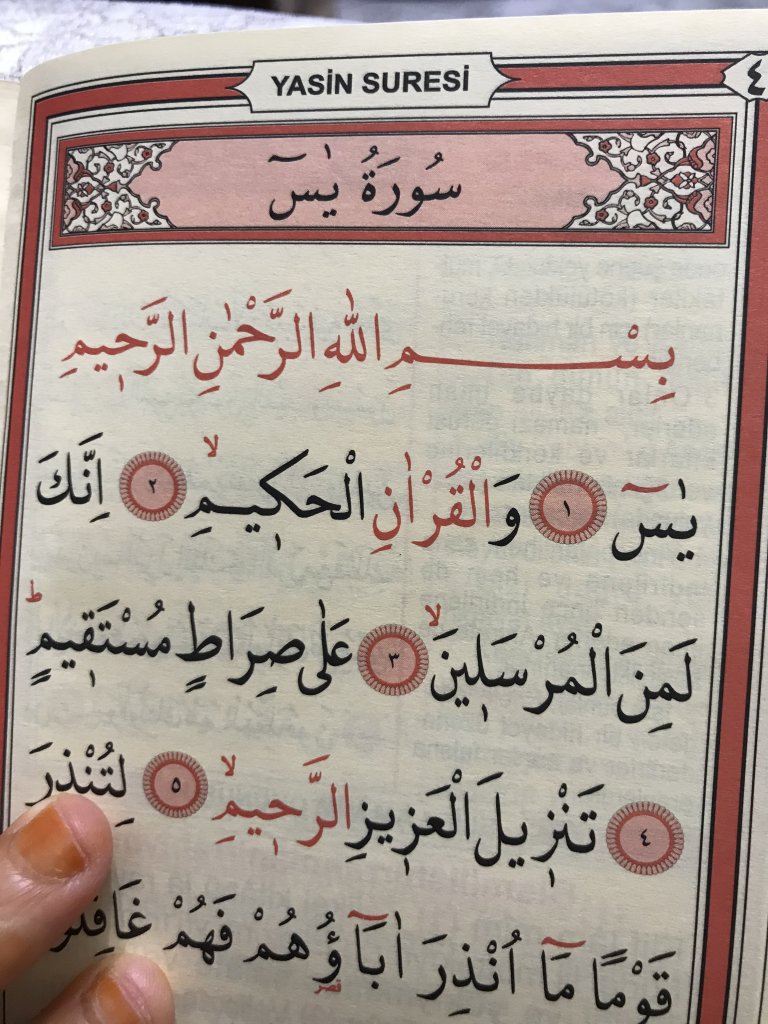 YASİN SURESİ
٤
سُورَةُ يٰسٓ
بِسْــــــــمِ اللّٰهِ الرَّحْمٰنِ الرَّحٖيمِ
يٰسٓ ١ وَالْقُرْاٰنِ الْحَكٖيمِۙ ٢ اِنَّكَ
لَمِنَ الْمُرْسَلٖينَۙ ٣ عَلٰى صِرَاطٍ مُسْتَقٖيمٍۜ
٤ تَنْزٖيلَ الْعَزٖيزِ الرَّحٖيمِۙ ٥ لِتُنْذِرَ
قَوْمًا مَٓا اُنْذِرَ اٰبَٓاؤُ۬هُمْ فَهُمْ